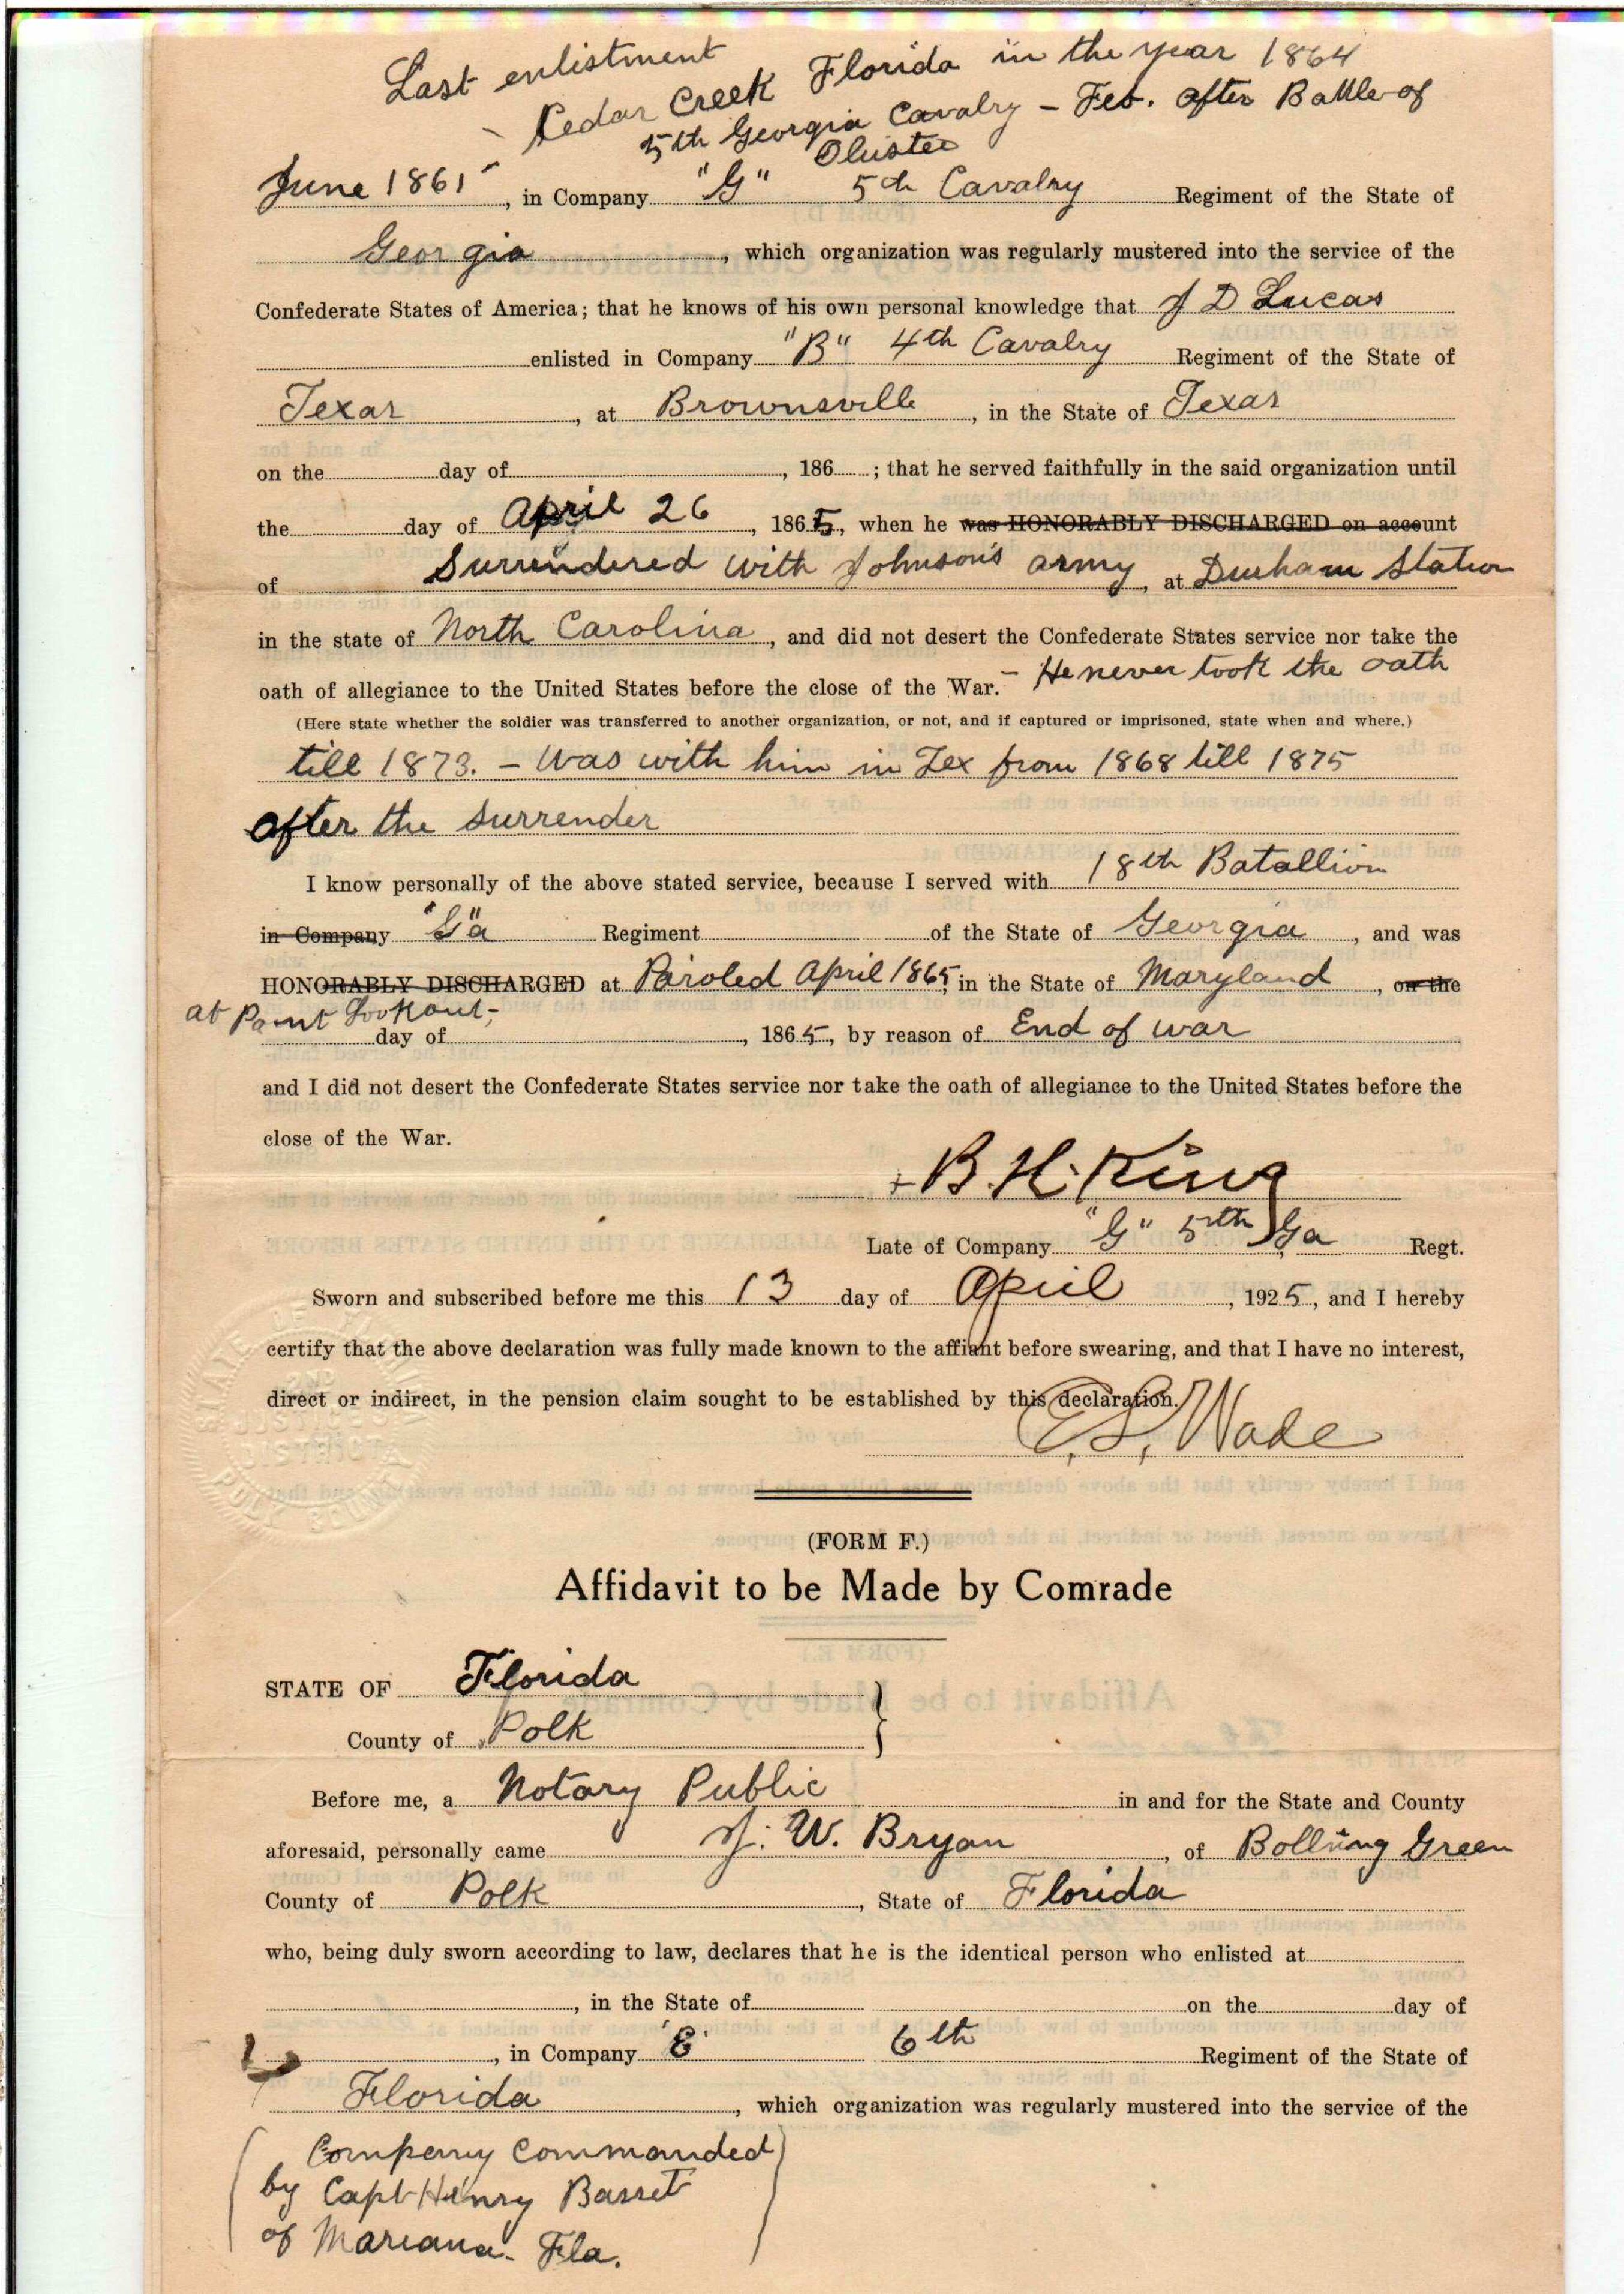 Last enlistment
Cedar Creek Florida in the year 1864
5th Georgia Cavalry – Feb. after Battle of
Olustee
June 1861, in Company "G" 5th Cavalry Regiment of the State of
Georgia, which organization was regularly mustered into the service of the
Confederate States of America; that he knows of his own personal knowledge that J D Lucas
enlisted in Company "B" 4th Cavalry Regiment of the State of
Texas, at Brownsville, in the State of Texas
on the day of , 186 ; that he served faithfully in the said organization until
the day of April 26, 1865, when he was HONORABLY DISCHARGED on account
of Surrendered with Johnson's army, at Durham Station
in the state of North Carolina, and did not desert the Confederate States service nor take the
oath of allegiance to the United States before the close of the War. – He never took the oath
(Here state whether the soldier was transferred to another organization, or not, and if captured or imprisoned, state when and where.)
till 1873. – Was with him in Tex from 1868 till 1875
after the surrender
I know personally of the above stated service, because I served with 18th Batallion
in Company "G"a Regiment of the State of Georgia, and was
HONORABLY DISCHARGED at Paroled April 1865, in the State of Maryland, on the
at Point Lookout-
day of , 1865, by reason of End of war
and I did not desert the Confederate States service nor take the oath of allegiance to the United States before the
close of the War.
B. H. King
Late of Company "G" 5th Ga Regt.
Sworn and subscribed before me this 13 day of April, 1925, and I hereby
certify that the above declaration was fully made known to the affiant before swearing, and that I have no interest,
direct or indirect, in the pension claim sought to be established by this declaration.
E. S. Wade
(FORM F.)
Affidavit to be Made by Comrade
STATE OF Florida
County of Polk
Before me, a Notary Public in and for the State and County
aforesaid, personally came J. W. Bryan, of Bolling Green
County of Polk, State of Florida
who, being duly sworn according to law, declares that he is the identical person who enlisted at
, in the State of on the day of
, in Company 'E' 6th Regiment of the State of
Florida, which organization was regularly mustered into the service of the
(Company commanded
by Capt Henry Basset
of Mariana. Fla.)